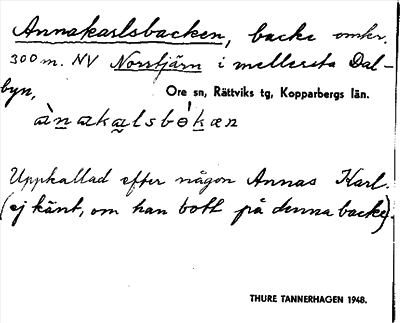 Annakarlsbacken, backe omkr.
300 m. NV Norrtjärn i mellersta Dal-
byn,
Ore sn, Rättviks tg, Kopparbergs län.
Uppkallad efter någon Annas Karl.
(ej känt, om han bott på denna backe).
THURE TANNERHAGEN 1948.